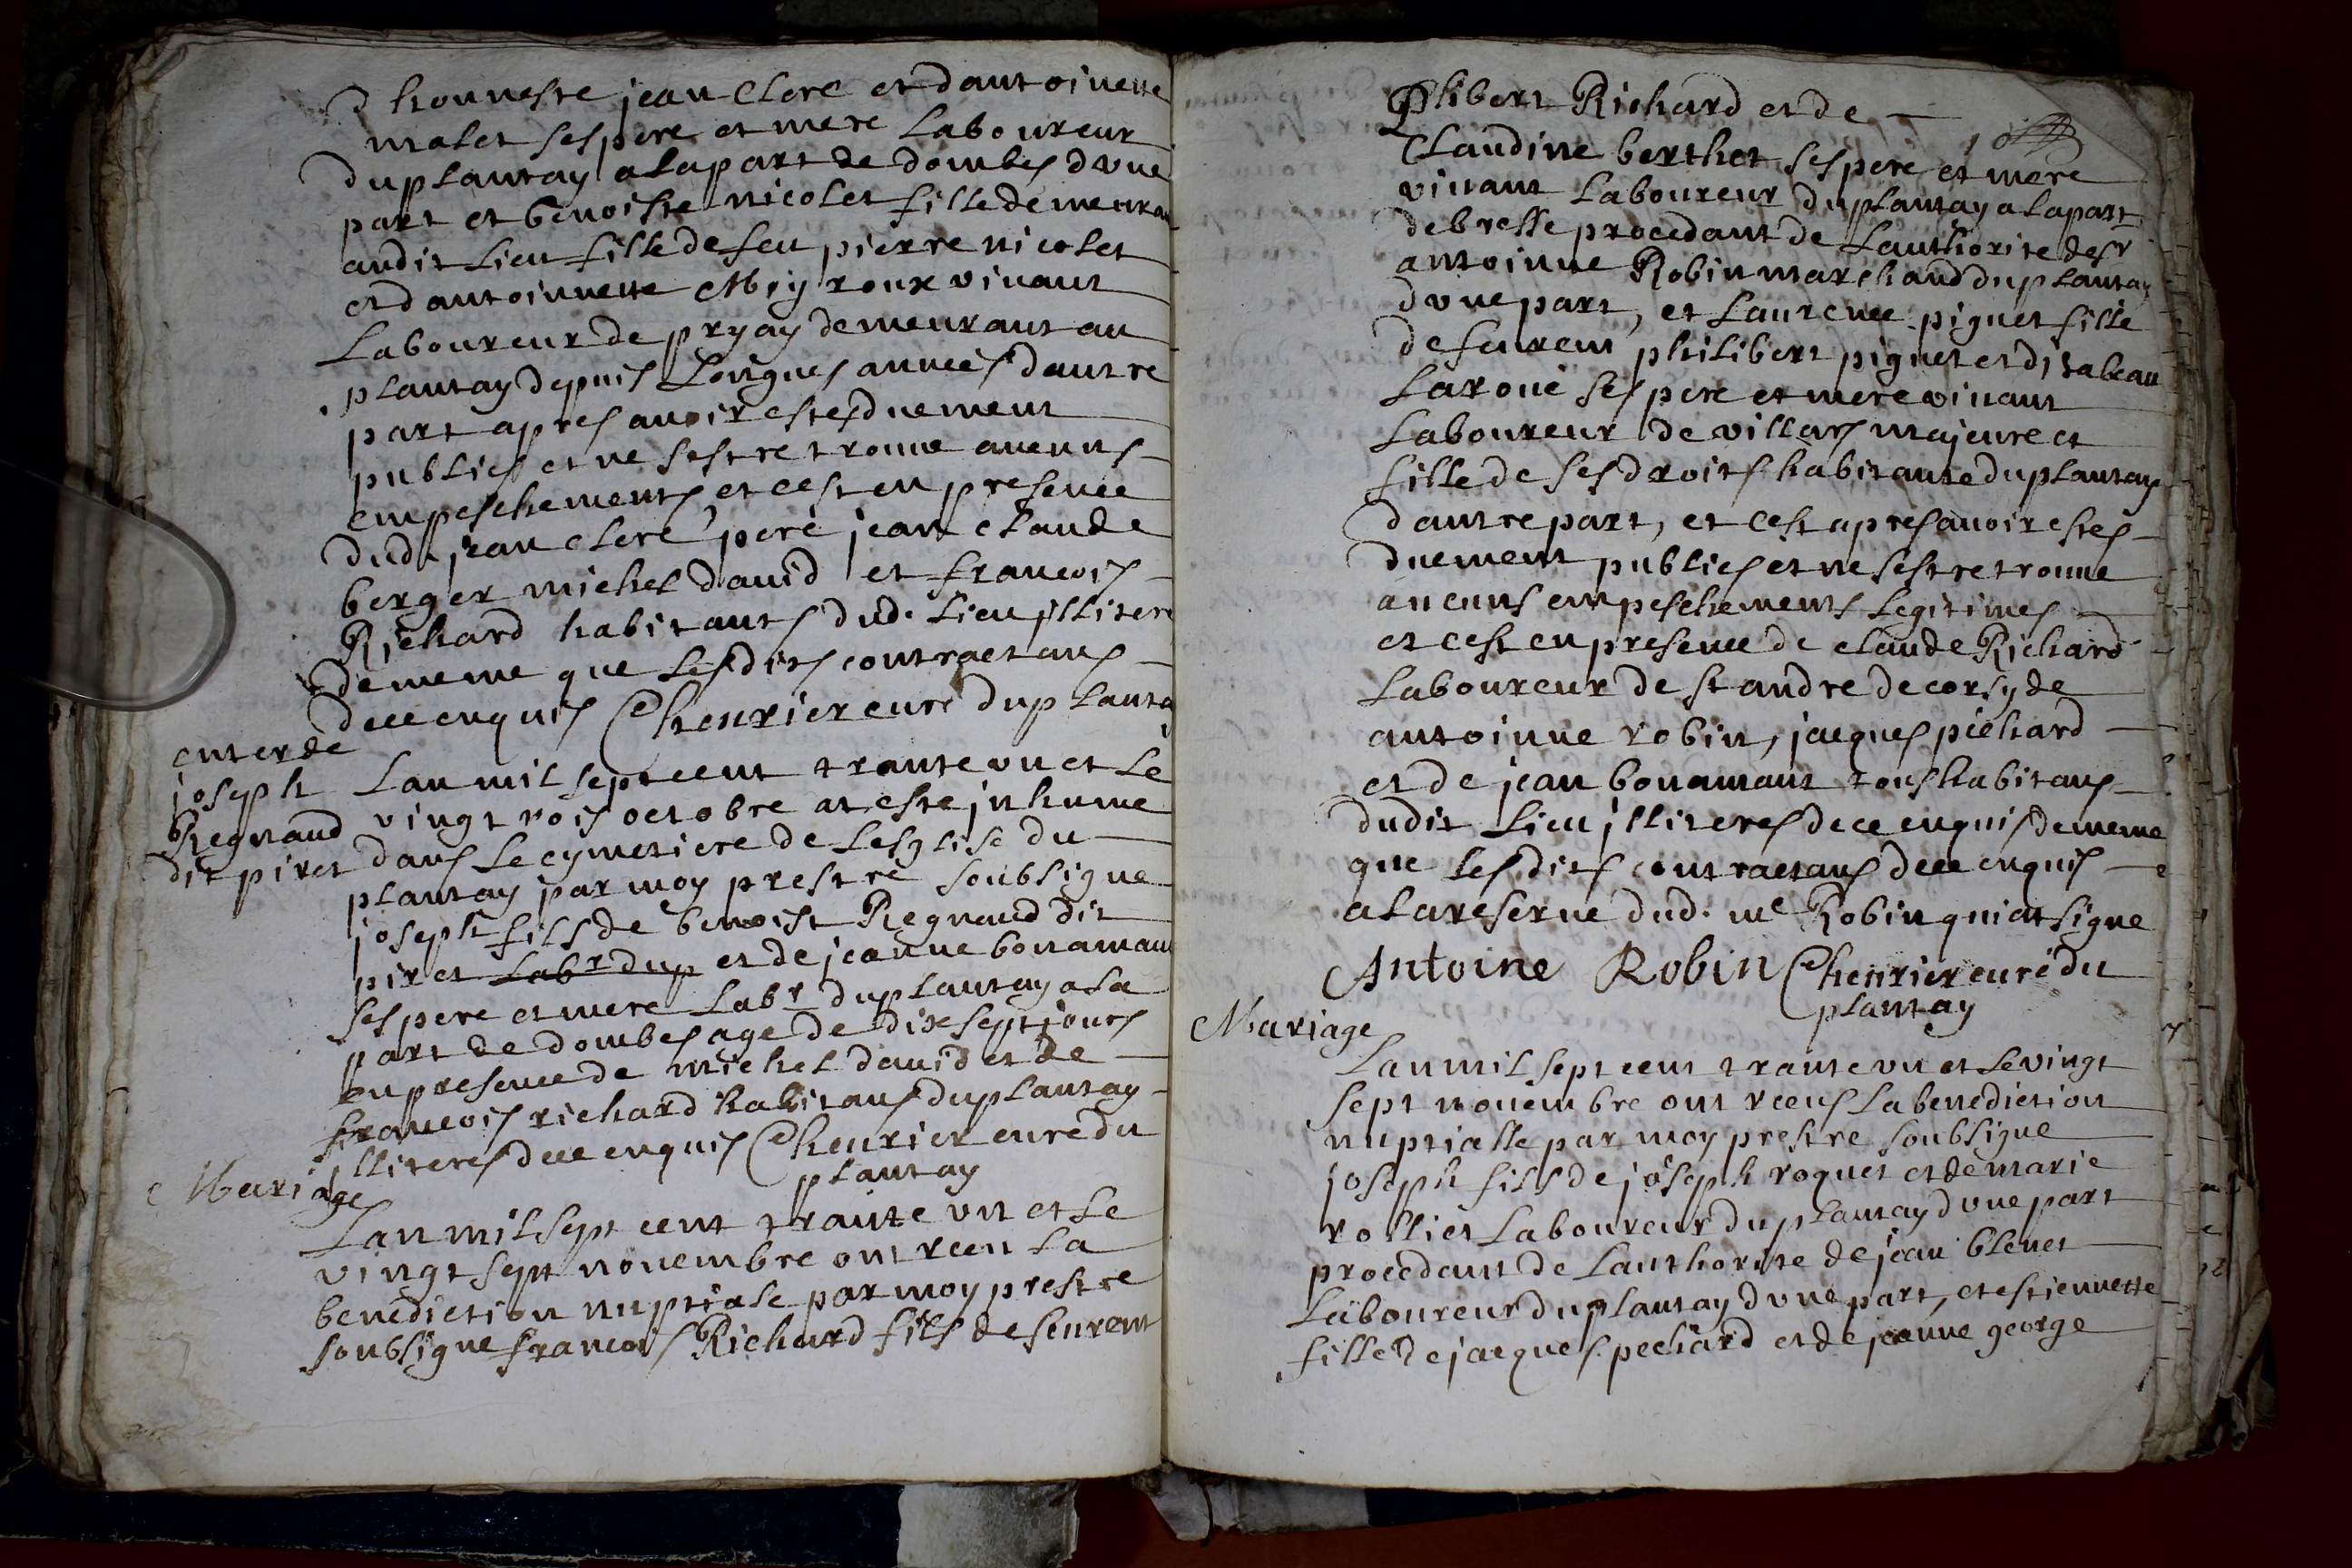 d honneste jean Clerc et dantoinette
molet ses pere et mere Laboureur
du plantay a la part de dombes dvne
part et benoiste nicolet fille demeuran
audit Lieu fille de feu pierre nicolet
et dantoinnette Moyroux viuant
Laboureur de pryay demeurant au
plantay depuis Longues années dautre
part apres auoir estes duement
publies et ne sestre trouue aucuns
empeschements et cest en presence
dud. jean clerc pere jean claude
berger michel dauid et francois
Richard habitants dud. Lieu illitere
de meme que Lesdits contractans
dece enquis Chenrier curé du planta
enter de
joseph
Regnaud
dit piret
Lan mil sept cent trante vn et Le
vingt rois octobre at este jnhume
dans Le cymetiere de Lesglise du
plantay par moy prestre soubsigne
joseph fils de benoist Regnaud dit
piret Labr dup et de jeanne bonamant
ses pere et mere Labr du plantay a La
part de dombes age de dix sept jours
en presence de michel dauid et de
francois richard habitans du plantay
jlliteres dece enquis Chenrier curé du
plantay
Mariage
Lan mil sept cent trante vn et Le
vingt sept nouembre ont receu La
benediction nuptiale par moy prestre
soubsigne francois Richard fils de feurent
Phibert Richard et de
Claudine berthet ses pere et mere
viuant Laboureur du plantay a la part
de bresse procedant de Lauthorite de sr
antoinne Robin marchand du plantay
dvne part, et Laurence piguet fille
de feurent philibert piguet et disabeau
Laroue ses pere et mere viuant
Laboureur de villars majeure et
fille de ses droits habitante du plantay
dautre part, et cest apres auoir estes
duement publies et ne sestre trouue
aucuns empeschements Legitimes
et cest en presence de claude Richard
Laboureur de st andre de corsy de
antoinne robin, jacques pichard
et de jean bonamant tous habitans
dudit Lieu jlliteres de ce enquis de meme
que Lesdits contractans dece enquis
a La reserue dud. me Robin qui at signe
Antoine Robin Chenrier curé du
plantay
Mariage
Lan mil sept cent trante vn et Le vingt
sept nouembre ont receus La benediction
nuptialle par moy prestre soubsigne
joseph fils de joseph roquet et de marie
rollier Laboureur du plantay dvne part
procedant de Lauthorite de jean blenet
Laboureur du plantay dvne part, et estiennette
fille de jacques pechard et de jeanne george